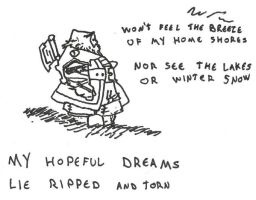 WON'T FEEL THE BREEZE
OF MY HOME SHORES
NOR SEE THE LAKES
OR WINTER SNOW
MY HOPEFUL DREAMS
LIE RIPPED AND TORN